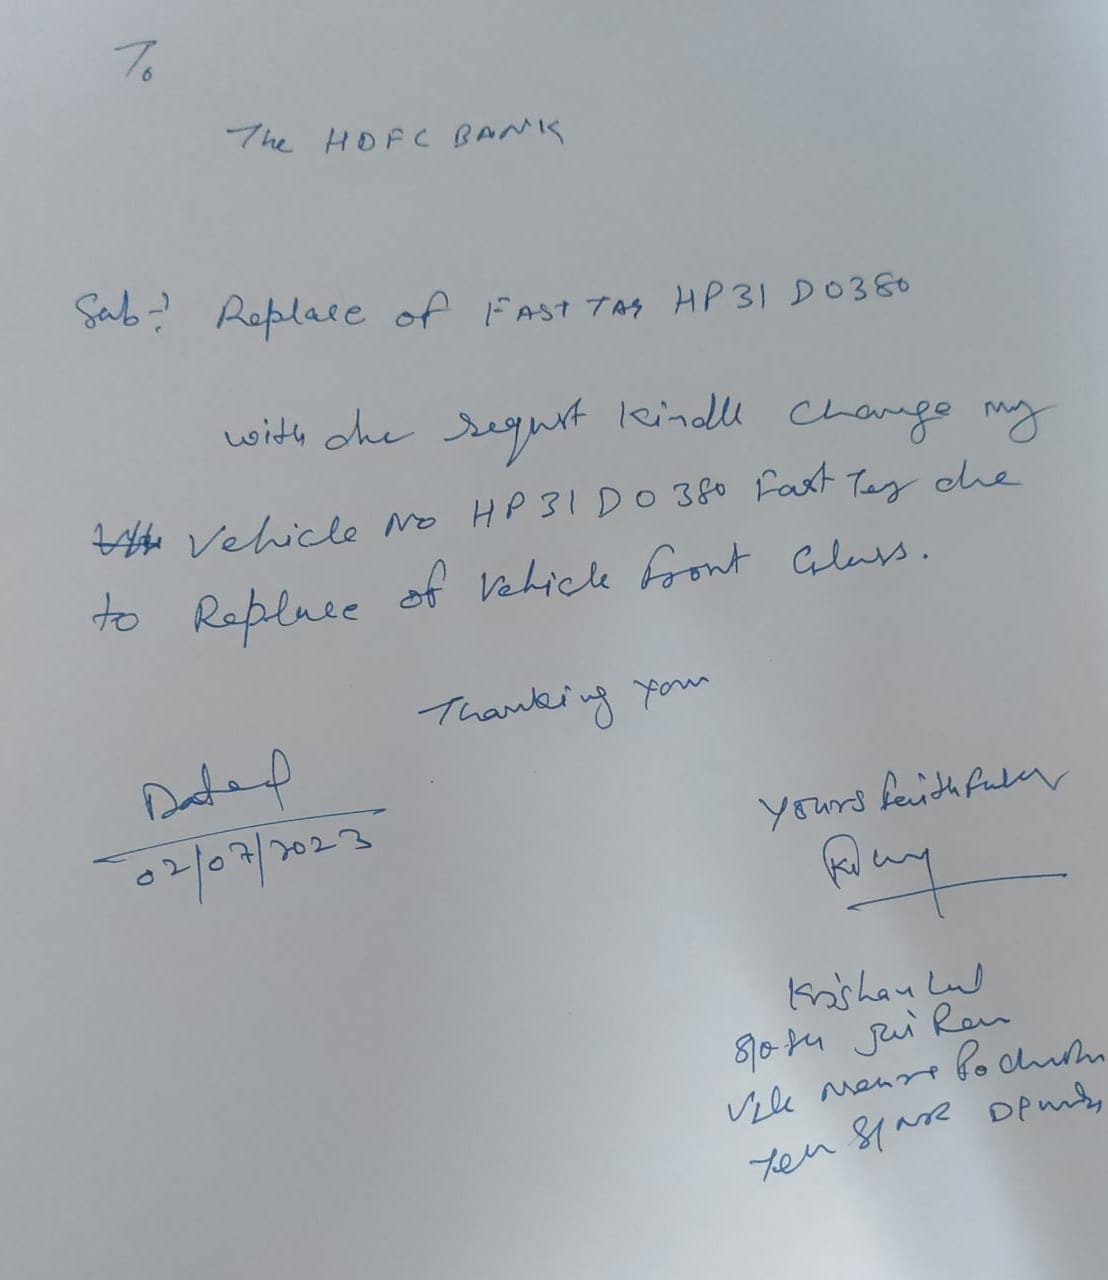 To
The HDFC BANK
Sub:- Replace of FAST TAG HP31 D0380
with due request kindle change my
Vehicle No HP31D0380 Fast Tag due
to Replace of Vehicle front Glass.
Thanking you
Dated
02/07/2023
Yours faithfully
Krishan Lal
S/o Sh Jai Ram
Vill
Teh